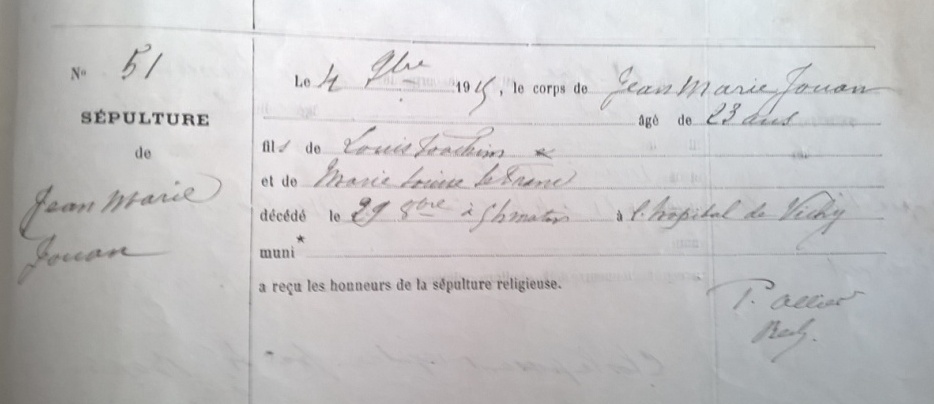 N° 51
SÉPULTURE
de
Jean Marie
Jouan
Le 4 9bre 1915, le corps de Jean Marie Jouan
âgé de 23 ans
fils de Louis Joachim
et de Marie Louise Le Franc
décédé le 29 8bre à 5h matin à l'hôpital de Vichy
muni*
a reçu les honneurs de la sépulture religieuse.
P. Allier